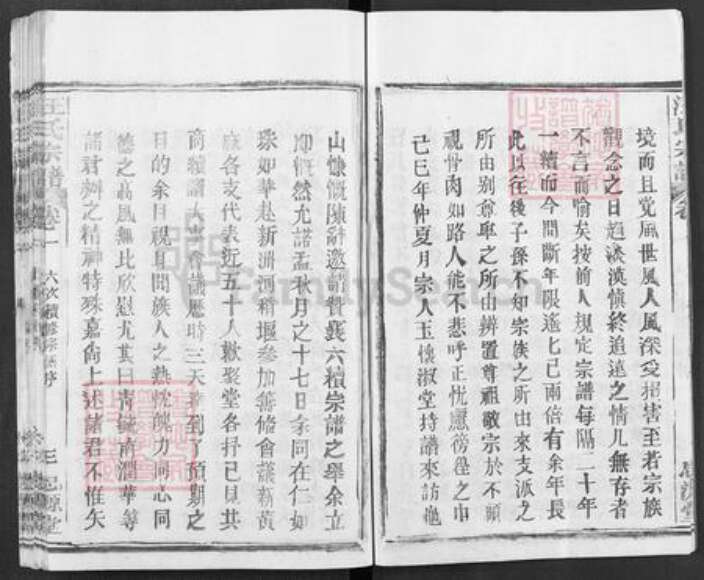 境而且党風世風人風深受損害至若宗族
觀念之日趨淡漠慎終追遠之情几無存者
不言而喻矣按前人規定宗譜每隔二十年
一續而今間斷年限遙七已兩倍有余年長
此以往後子孫不知宗族之所由來支派之
所由别尊卑之所由辨置尊祖敬宗於不顧
視骨肉如路人能不悲呼正忧慮徬徨之中
己巳年仲夏月宗人玉懷淑堂持譜來訪
山慷慨陳辭邀請賛襄六續宗譜之舉余立
即慨然允諾孟秋月之十七日余同在仁如
珠如華赴新洲河稍堰参加籌修會議新黄
麻各支代表近五十人歡聚堂各抒己見共
商續譜大事會議歷時三天達到了預期之
目的余目視耳聞族人之熱忱魄力同心同
德之高風無比欣慰尤其曰青毓南潤華等
諸君辨之精神特殊嘉尚上述諸君不惟矢
汪氏宗譜
卷一
六次續修宗譜序
FamilySearch